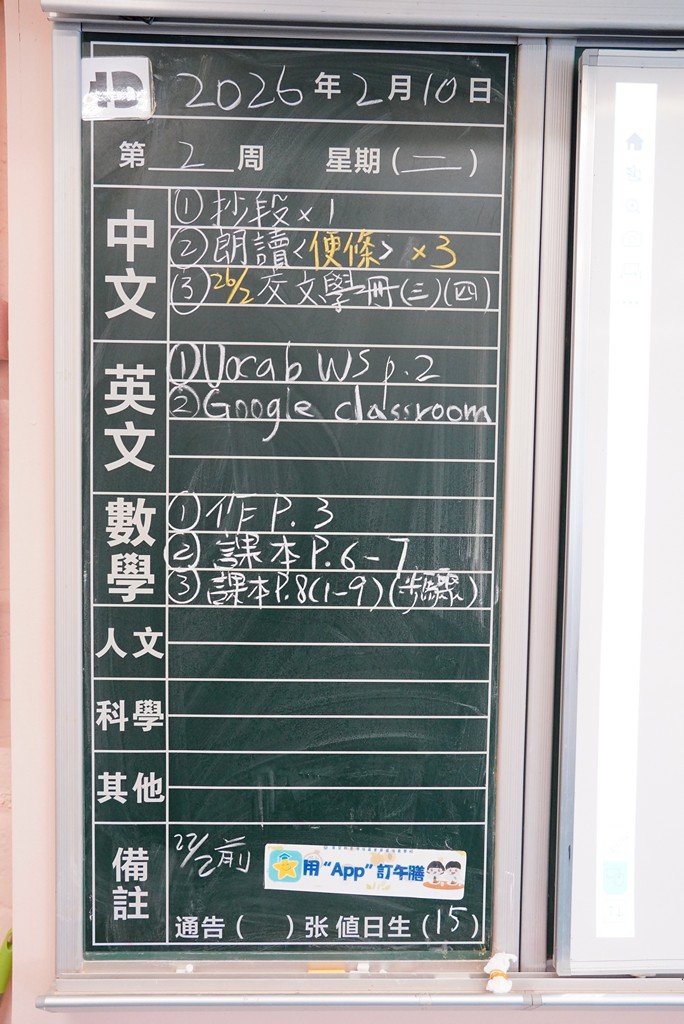 1D
2026年2月10日
第2周 星期(二)
中文
①抄段×1
②朗讀<便條>×3
③26/2交文學冊(三)(四)
英文
①Vocab WS p.2
②Google classroom
數學
①作P.3
②課本P.6-7
③課本P.8(1-9)(步驟)
人文
科學
其他
備註
22/2前
用“App”訂午膳
通告( )张 值日生(15)